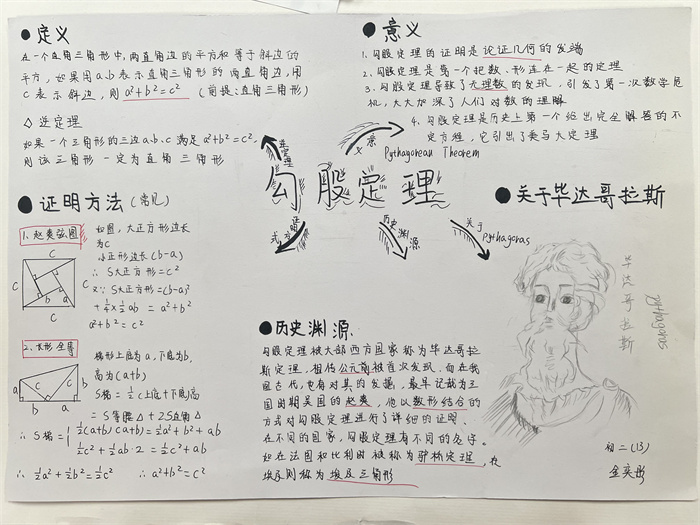 ●定义
在一个直角三角形中,两直角边的平方和等于斜边的
平方,如果用a、b表示直角三角形的两直角边,用
c表示斜边,则a²+b²=c² (前提:直角三角形)
◇逆定理
如果一个三角形的三边a、b、c满足a²+b²=c²,
则该三角形一定为直角三角形
●意义
1.勾股定理的证明是论证几何的发端
2.勾股定理是第一个把数、形连在一起的定理
3.勾股定理导致了无理数的发现,引发了第一次数学危
机,大大加深了人们对数的理解
4.勾股定理是历史上第一个给出完全解答的不
定方程,它引出了费马大定理
逆定理
意义
Pythagorean Theorem
勾股定理
证明方式
历史渊源
关于Pythagoras
●证明方法(常见)
1.赵爽弦图
如图,大正方形边长
为c
小正形边长(b-a)
∴ S大正方形=c²
又∵ S大正方形=(b-a)²
+4×½ab = a²+b²
a²+b²=c²
c
c
c
c
b
a
2.
梯形上底为a,下底为b,
高为(a+b)
S梯=½(上底+下底)高
= S等腰△+2S直角△
∴ S梯={½(a+b)(a+b)=½a²+b²+ab
½c²+½ab·2=½c²+ab
∴ ½a²+½b²=½c² ∴ a²+b²=c²
a
c
c
b
b
a
●历史渊源
勾股定理被大部西方国家称为毕达哥拉
斯定理,相传公元前被首次发现,而在我
国古代,也有对其的发掘,最早记载为三
国时期吴国的赵爽,他以数形结合的
方式对勾股定理进行了详细的证明、
在不同的国家,勾股定理有不同的名字。
如在法国和比利时被称为驴桥定理,在
埃及则称为埃及三角形
●关于毕达哥拉斯
毕达哥拉斯
pythagoras
初二(13)